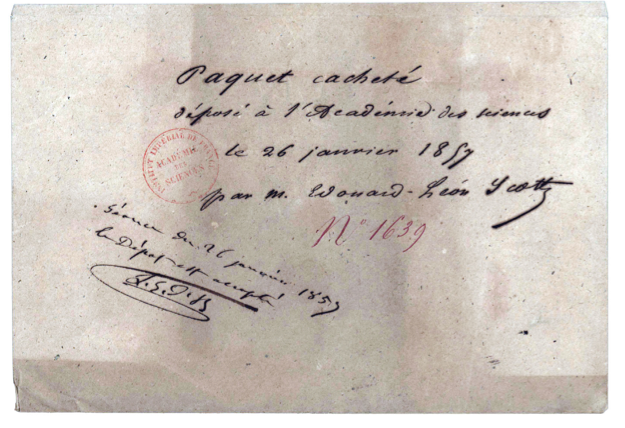 Paquet cacheté
déposé à l'Académie des sciences
le 26 janvier 1857
par M. Edouard-Léon Scott
N° 1639
INSTITUT IMPÉRIAL DE FRANCE
ACADÉMIE
DES
SCIENCES
Séance du 26 janvier 1857
le Dépôt est accepté